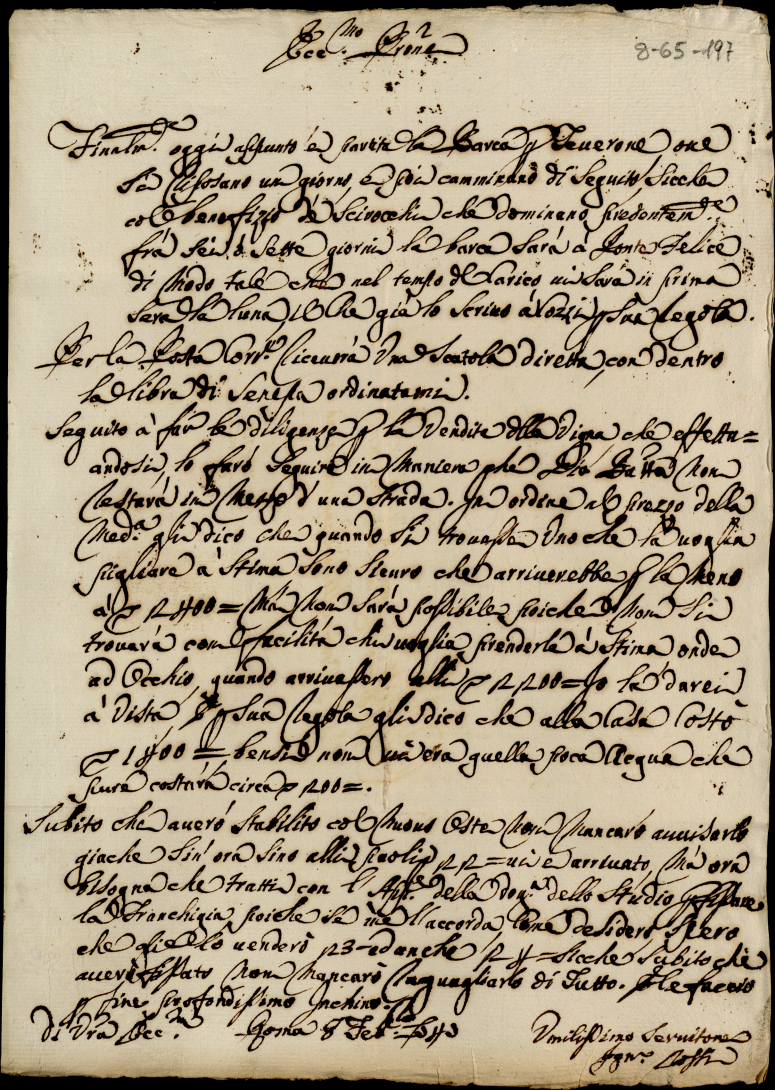 Ecc.mo Prone
8-65-197
Finalm.te oggi appunto è partita la Barca p Teverone ove
si riposano un giorno, e poi camminano di seguito, sicche
col benefizio de Scirocchi che dominano presentem.te
frà sei, ò sette giorni la barca sarà à Ponte Felice
di modo tale che nel tempo del carico vi sarà in prima
sera la luna, il che già lo scrivo à Pozzi p sua regola.
Per la Posta Corr.te riceverà una Scatola diretta, con dentro
la libra di Senepa ordinatami.
Seguito à far le diligenze p la Vendita della Vigna che effettu=
andosi, lo farò seguire in maniera che non
restarà in mezzo d'una strada. In ordine al prezzo della
Med.a gli dico che quando si trovasse uno che la voglia
pigliare à stima sono sicuro che arriverebbe p la meno
à Ma non sarà possibile, poiche non si
trovarà con facilità chi voglia prenderla à stima onde
ad occhio, quando arrivassero alli Io la darei
à vista, e p sua regola gli dico che alla Casa costò
bensì non vi era quella poca acqua che
pure costarà circa 200=.
Subito che averò stabilito col nuovo Oste non mancarò avvisarlo
giache sin'ora sino alli paoli 22= vi è arrivato, mà ora
bisogna che tratti con l' della dog.a dello Studio p fissare
la Franchigia, poiche se me l'accorda, come desidero, spero
che glie lo venderò 23 ed anche sicche subito che
averò fissato non mancarò ragguagliarlo di tutto. E le faccio
p fine profondissimo inchino.
Di Vra Ecc.za Roma 8 Feb.
Umilissimo Servitore